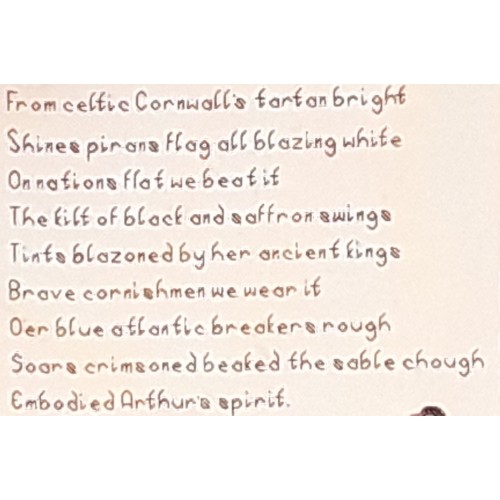 From celtic Cornwall's tartan bright
Shines pirans flag all blazing white
On nations flat we beat it
The kilt of black and saffron swings
Tints blazoned by her ancient kings
Brave cornishmen we wear it
O'er blue atlantic breakers rough
Soars crimsoned beaked the sable chough
Embodied Arthur's spirit.